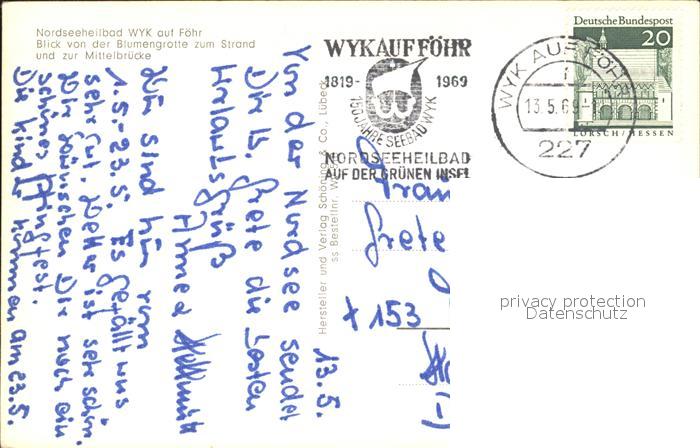 Nordseeheilbad WYK auf Föhr
Blick von der Blumengrotte zum Strand
und zur Mittelbrücke
13.5.
Von der Nordsee sendet
Dir lb. Grete die besten
Urlaubsgrüße
Anne + Hellmuth
Wir sind hier vom
1.5-23.5. Es gefällt uns
sehr gut. Wetter ist sehr schön.
Wir wünschen Dir noch ein
schönes Pfingstfest.
Die Kinder kommen am 23.5.
Hersteller und Verlag Schöning & Co., Lübeck
ss Bestellnr. W
WYK AUF FÖHR
1819- 1969
150 JAHRE SEEBAD WYK
NORDSEEHEILBAD
AUF DER GRÜNEN INSEL
WYK AUF FÖHR
13.5.69
227
Deutsche Bundespost
20
LORSCH/HESSEN
Grete
153
privacy protection
Datenschutz